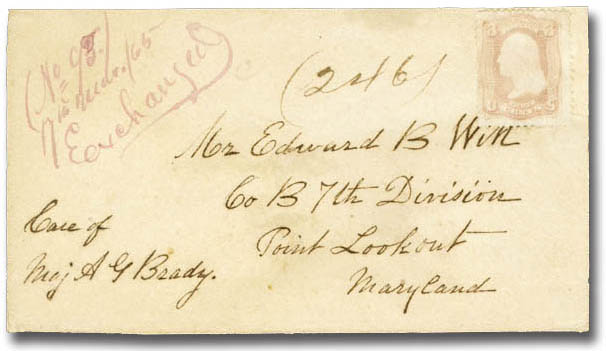 (No 93.)
/65
Exchanged
(246)
Mr Edward B Witt
Co B 7th Division
Point Lookout
Maryland
Care of
Maj A G Brady.